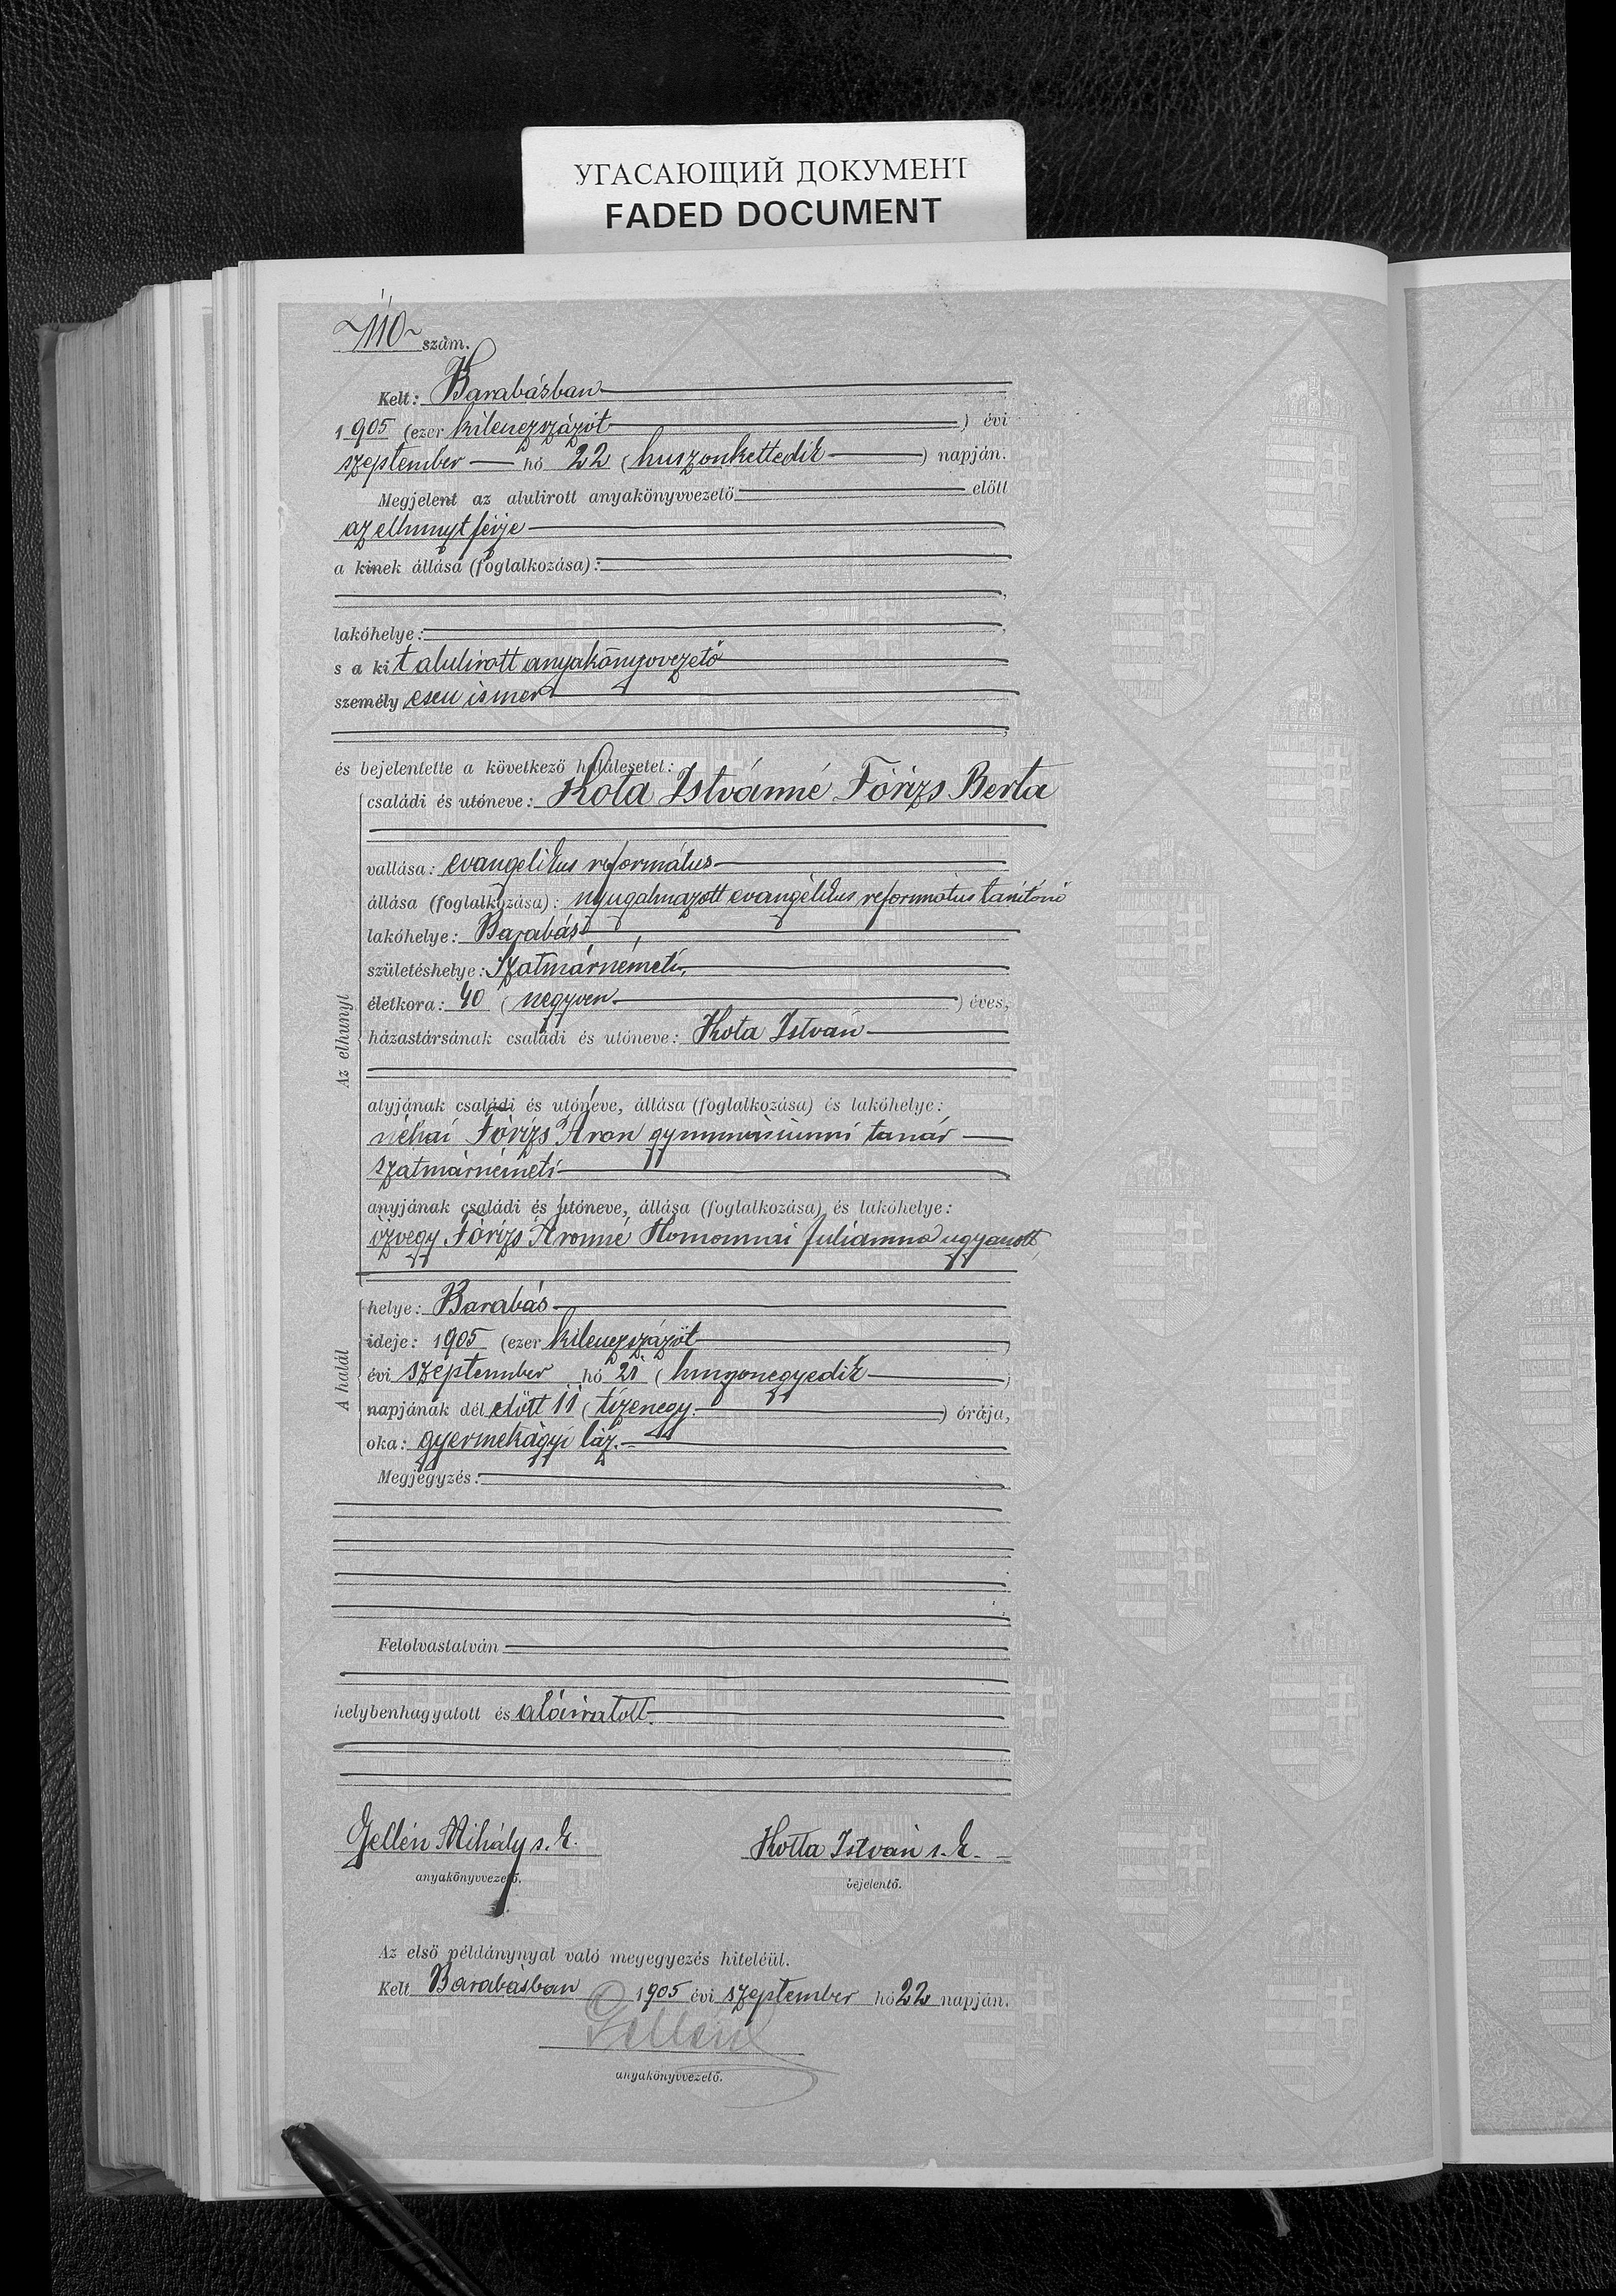 УГАСАЮЩИЙ ДОКУМЕНТ
FADED DOCUMENT
110 szám.
Kelt: Barabásban
1905 (ezer kilenczszázöt) évi
szeptember hó 22 (huszonkettedik) napján.
Megjelent az alulirott anyakönyvvezető előtt
az elhunyt férje
a kinek állása (foglalkozása):
lakóhelye:
s a kit alulirott anyakönyvvezető
személyesen ismer
és bejelentette a következő halálesetet:
családi és utóneve: Kota Istvánné Fórizs Berta
vallása: evangelikus református
állása (foglalkozása): nyugalmazott evangélikus református tanítónő
lakóhelye: Barabás
születéshelye: Szatmárnémeti,
életkora: 40 (negyven) éves,
házastársának családi és utóneve: Kota István
Az elhunyt
atyjának családi és utóneve, állása (foglalkozása) és lakóhelye:
néhai Fórizs Áron gymnasiumi tanár
szatmárnémeti
anyjának családi és utóneve, állása (foglalkozása) és lakóhelye:
özvegy Fórizs Áronné Homonnai Juliánna ugyanott
helye: Barabás
ideje: 1905 (ezer kilenczszázöt)
évi szeptember hó 21 (huszonegyedik)
A halál
napjának dél előtt 11 (tizenegy) órája,
oka: gyermekágyi láz.
Megjegyzés:
Felolvastatván
helybenhagyatott és aláiratott.
Gellén Mihály s. k.
Kotta István s. k.
anyakönyvvezető.
bejelentő.
Az első példánynyal való megegyezés hiteléül.
Kelt Barabásban 1905 évi szeptember hó 22 napján.
Gellén
anyakönyvvezető.